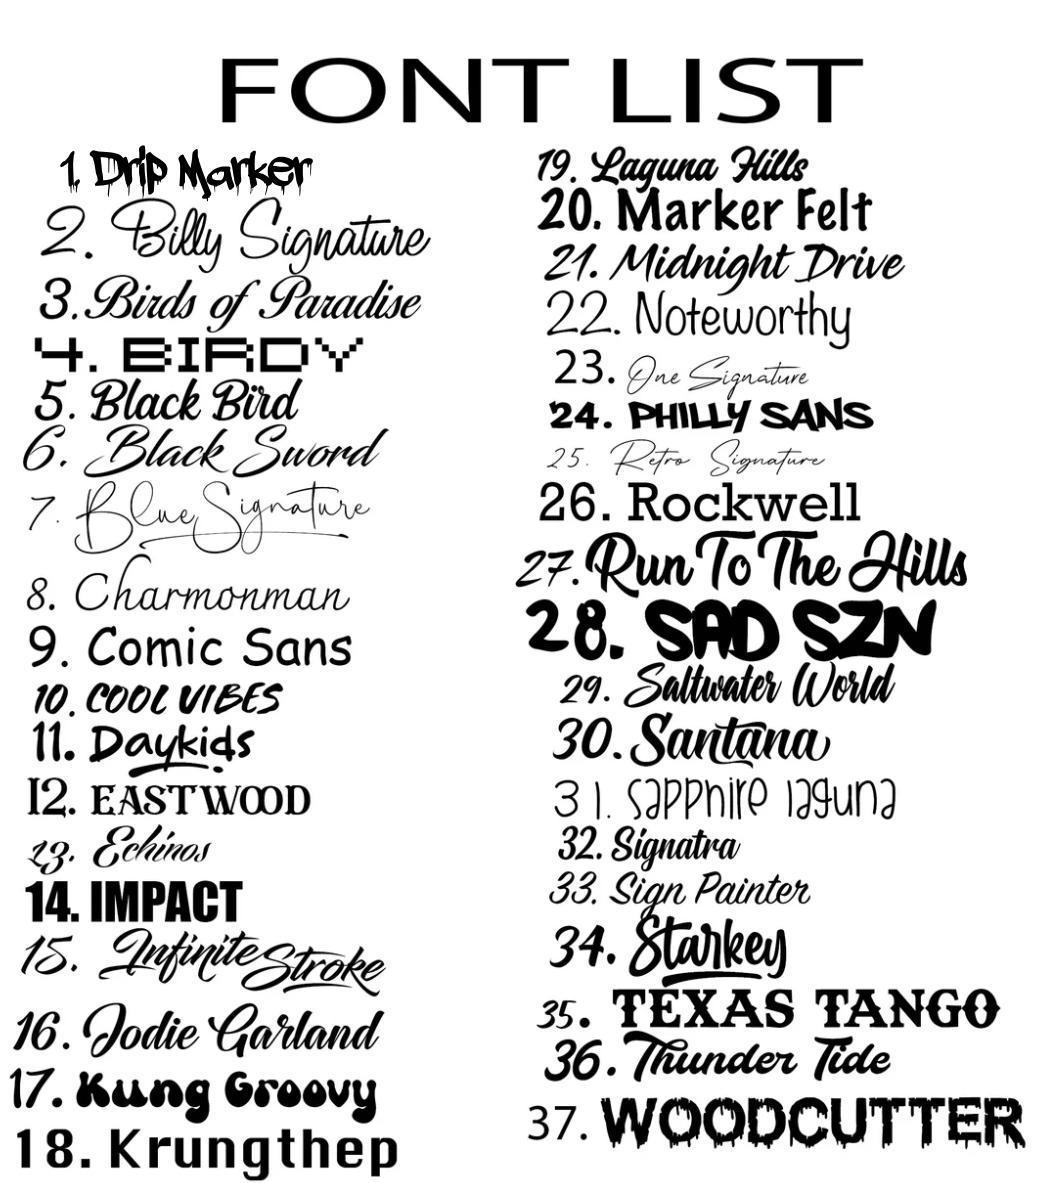 FONT LIST
1. Drip Marker
2. Billy Signature
3. Birds of Paradise
4. BIRDY
5. Black Bird
6. Black Sword
7. Blue Signature
8. Charmonman
9. Comic Sans
10. COOL VIBES
11. Daykids
12. EASTWOOD
13. Echinos
14. IMPACT
15. Infinite Stroke
16. Jodie Garland
17. Kung Groovy
18. Krungthep
19. Laguna Hills
20. Marker Felt
21. Midnight Drive
22. Noteworthy
23. One Signature
24. PHILLY SANS
25. Retro Signature
26. Rockwell
27. Run To The Hills
28. SAD SZN
29. Saltwater World
30. Santana
31. sapphire laguna
32. Signatra
33. Sign Painter
34. Starkey
35. TEXAS TANGO
36. Thunder Tide
37. WOODCUTTER